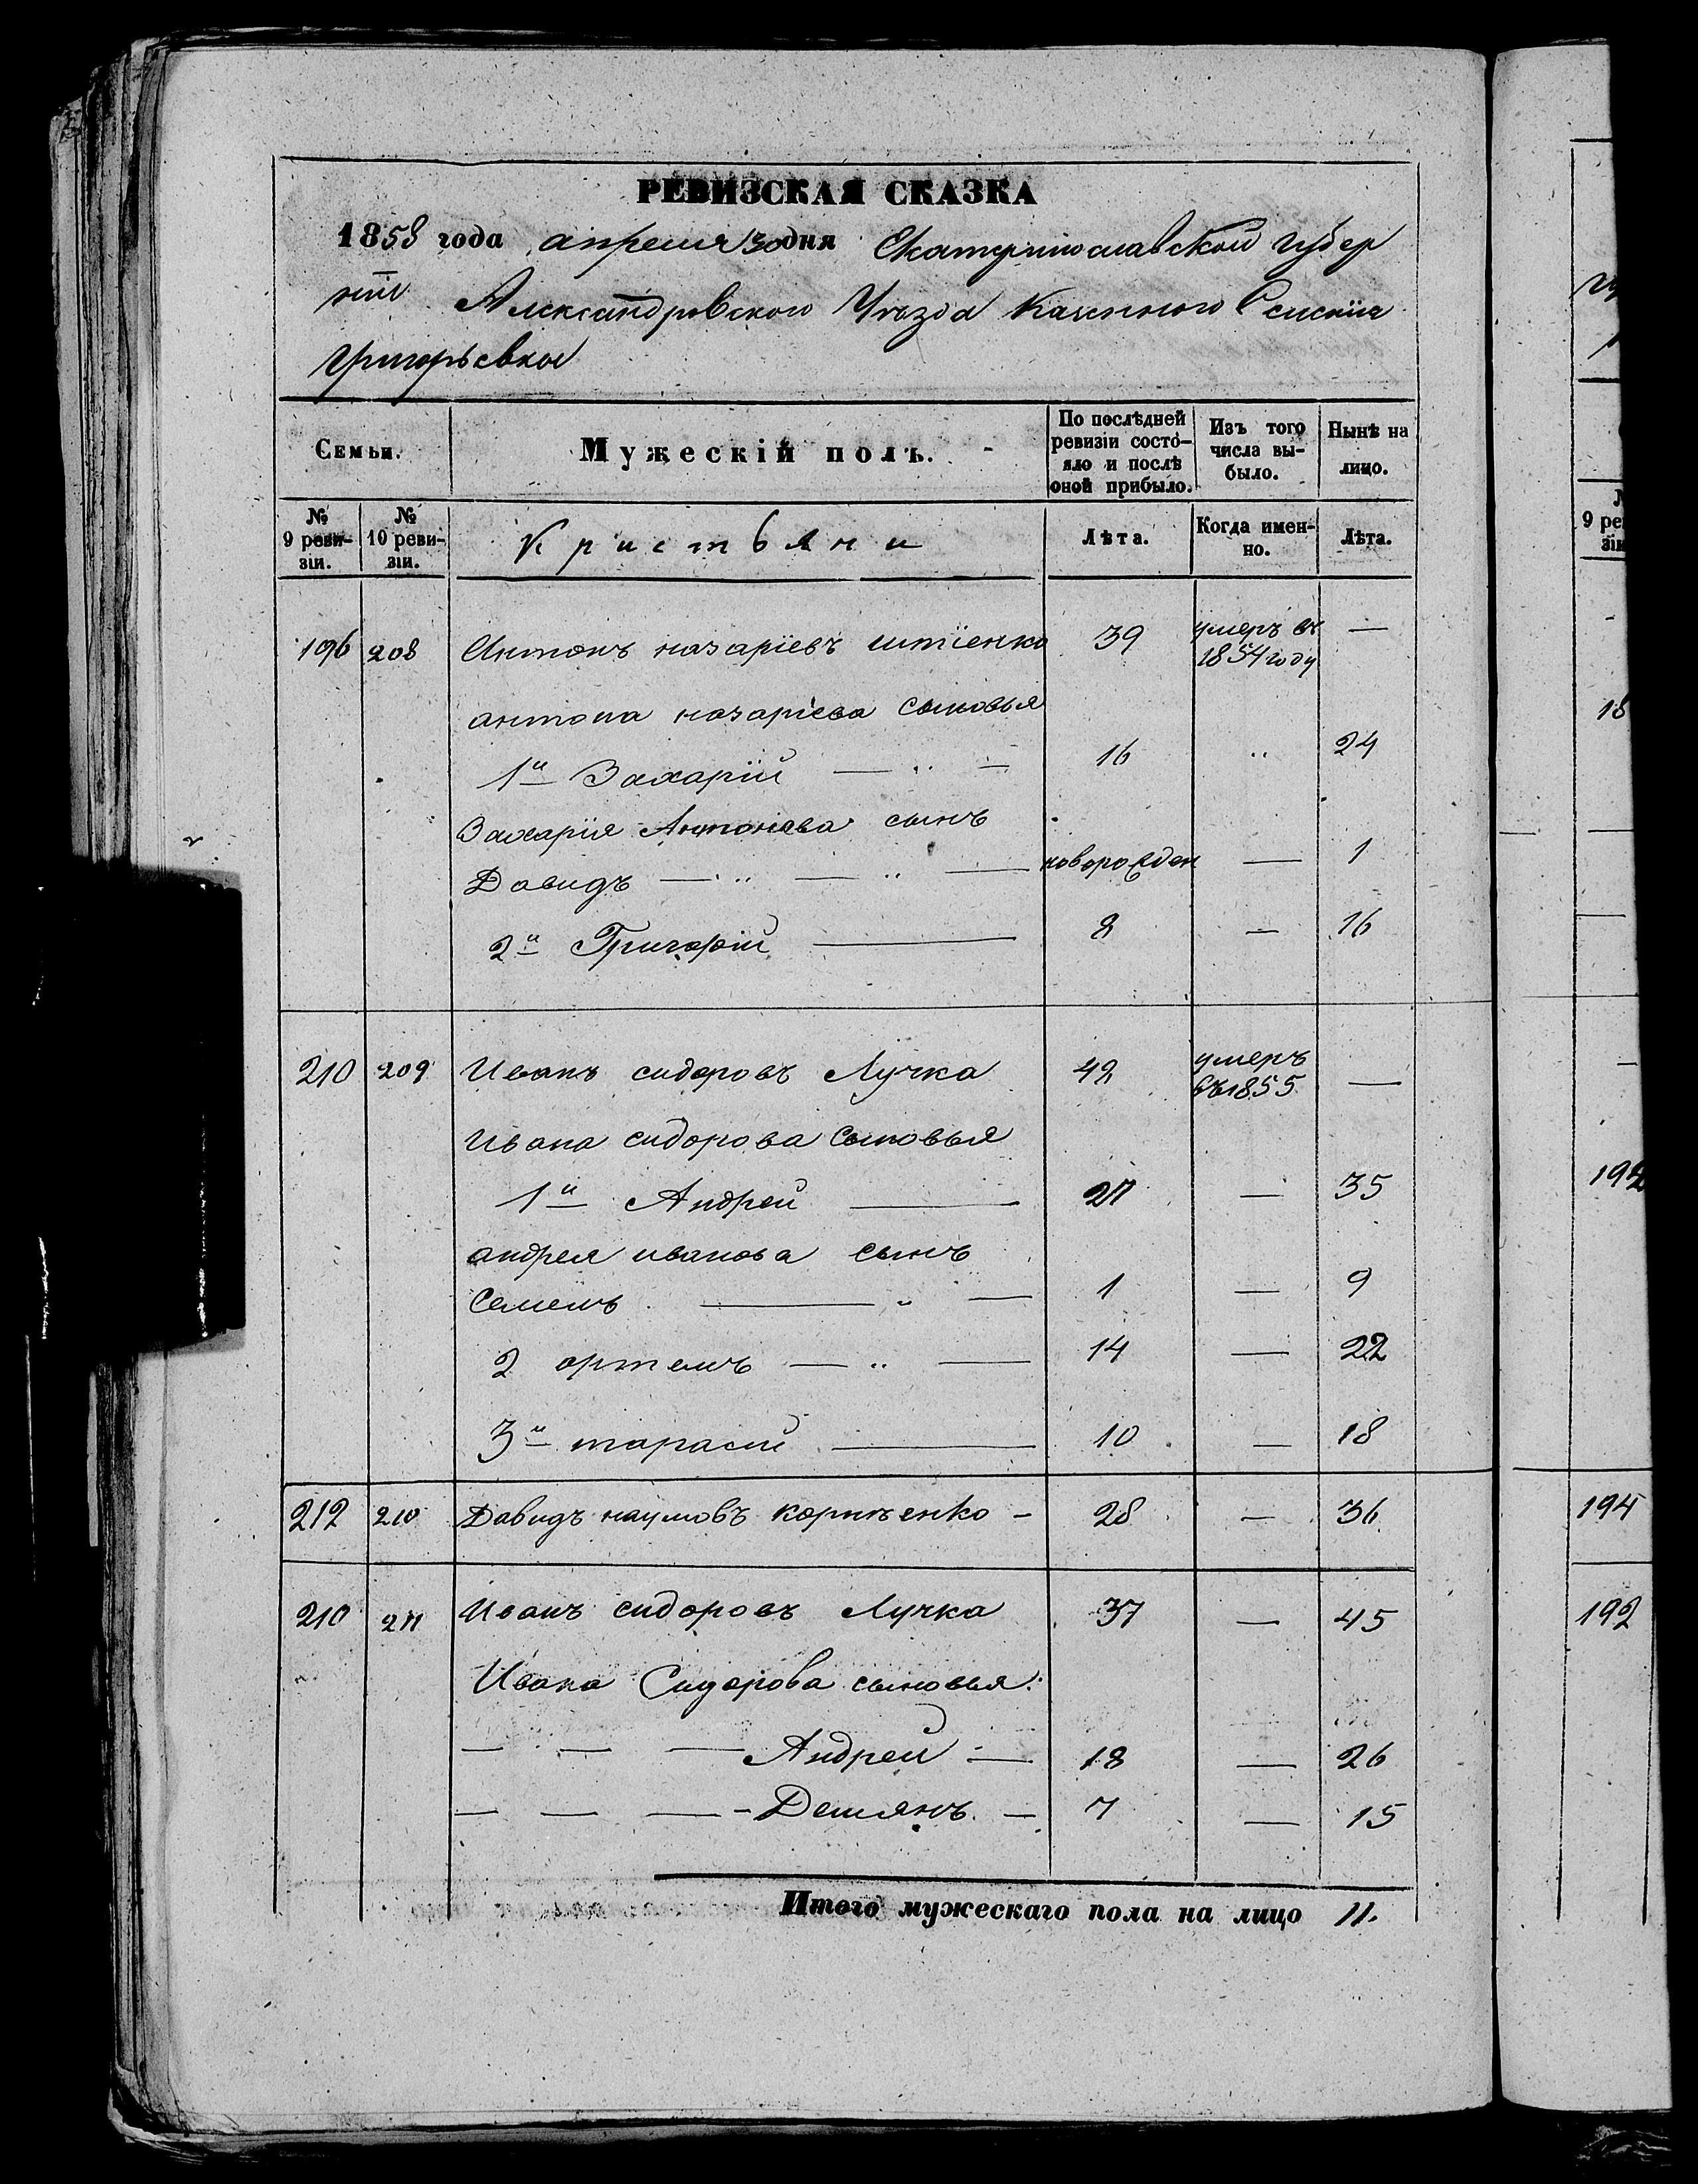 РЕВИЗСКАЯ СКАЗКА
1858 года апреля 30 дня Екатеринославской губер
нiи Александровского Уѣзда Казенного Селенiя
Григорьевки
Семьи.
Мужескiй полъ.
По послѣдней ревизiи состо-яло и послѣ оной прибыло.
Изъ того числа вы-было.
Нынѣ на лицо.
№ 9 реви-зiи.
№ 10 реви-зiи.
Кристьяни
Лѣта.
Когда имен-но.
Лѣта.
196 208 Антонъ назарiевъ 39 умеръ въ 1854 году —
антона назарiева сыновья
1й Захарiй — „ — 16 „ 24
Захарiя Антонева сынъ
Давидъ — „ — „ — новорожден — 1
2й Григорiй — 8 — 16
210 209 Иванъ сидоровъ Лучка 42 умеръ въ 1855 —
Ивана сидорова сыновья
1й Андрей — 27 — 35
андрея иванова сынъ
Семенъ — „ — 1 — 9
2 ортемъ — „ — 14 — 22
3й тарасiй — 10 — 18
212 210 Давидъ наумовъ корнѣенко — 28 — 36
210 211 Иванъ сидоровъ Лучка 37 — 45
Ивана Сидорова сыновья:
— — — Андрей — 18 — 26
— — — Демянъ. — 7 — 15
Итого мужескаго пола на лицо 11.
18
192
194
192